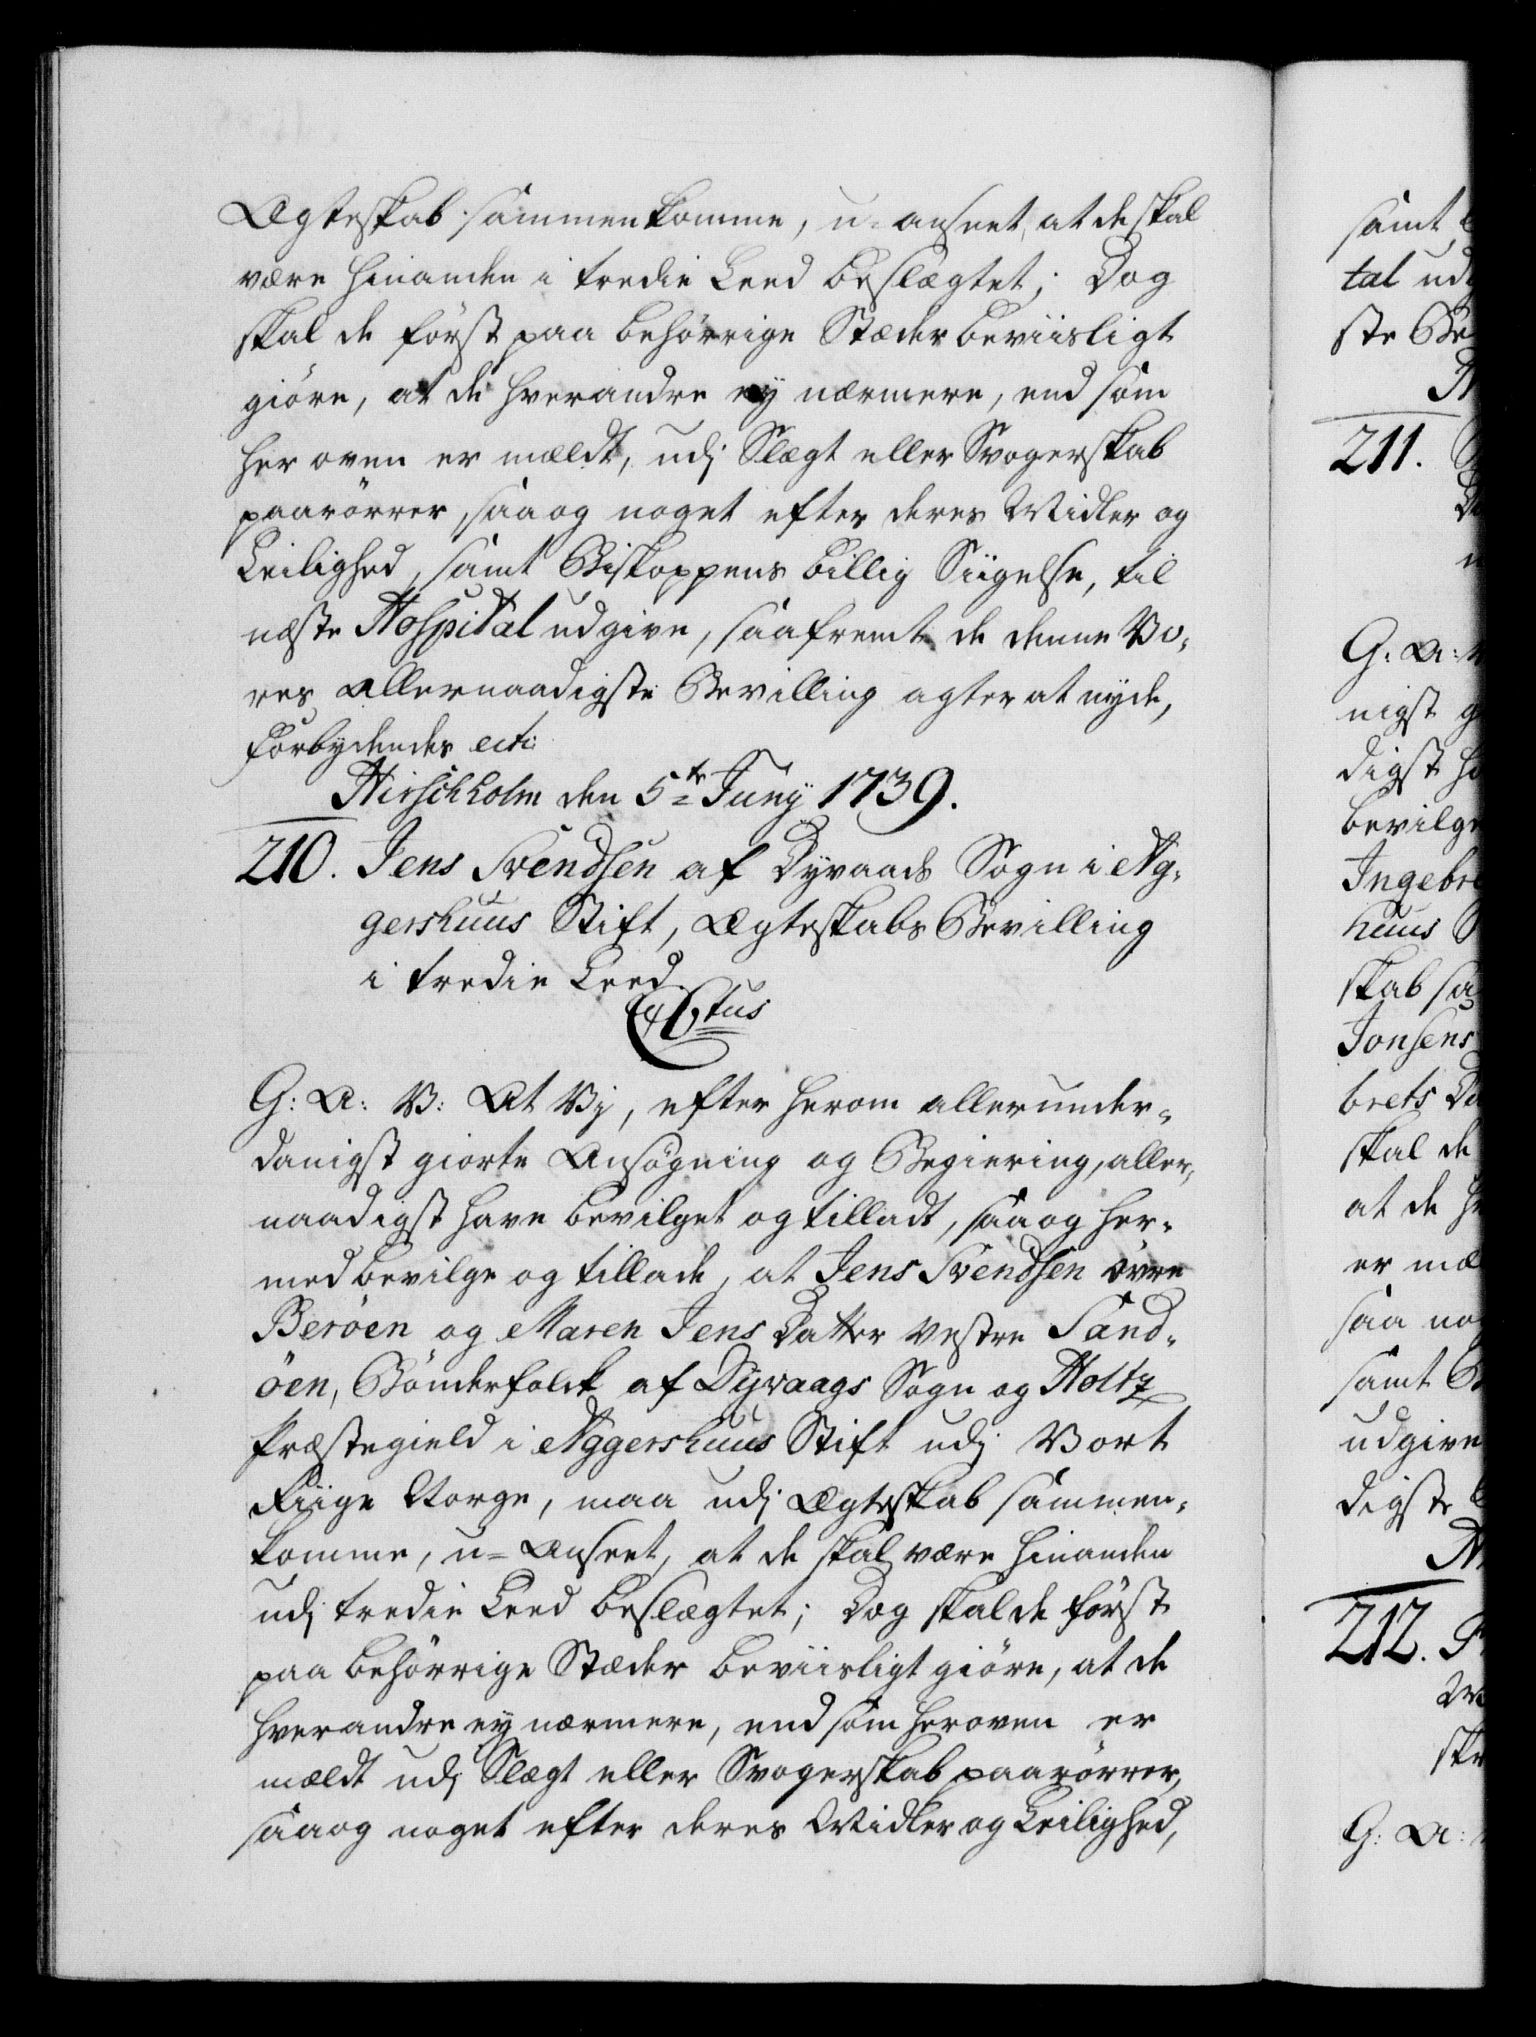 Ægteskab sammenkomme, u-anseet, at de skal
være hinanden i tredie Leed beslægtet; Dog
skal de først paa behørige Stæder beviisligt
giøre, at de hverandre ey nærmere, end som
her oven er mældt, udj Slægt eller Svogerskab
paarører, saa og noget efter deres Midler og
Leilighed, samt Biskoppens billig Siigelse, til
næste Hospital udgive, saafremt de denne Vo-
res allernaadigste Bevilling agter at nyde,
Forbydendes ectr:
Hirschholm den 5te Juny 1739.
210. Jens Svendsen af Dyvaads Sogn i Ag-
gershuus Stift, Ægteskabs Bevilling
i tredie Leed
G: A: V: At Vj, efter herom allerunder-
danigst giorte Ansøgning og Begiering, aller-
naadigst have bevilget og tilladt, saa og her-
med bevilge og tillade, at Jens Svendsen övre
Beröen og Maren Jens Datter Vestre Sand-
öen, Bønderfolck af Dyvaags Sogn og Holtz
Præstegield i Aggershuus Stift udj Vort
Riige Norge, maa udj Ægteskab sammen-
komme, u-Anseet, at de skal være hinanden
udj tredie Leed beslægtet; Dog skal de først
paa behørrige Stæder beviisligt giøre, at de
hverandre ey nærmere, end som heroven er
mældt udj Slægt eller Svogerskab paarørrer,
saa og noget efter deres Midler og Leilighed,
samt
tal
ste
211.
G: A:
nigst
digst
bevilge
huus
skab
Jonsens
brets
skal de
at de
er
saa
samt
udgive
digste
212.
G: A: